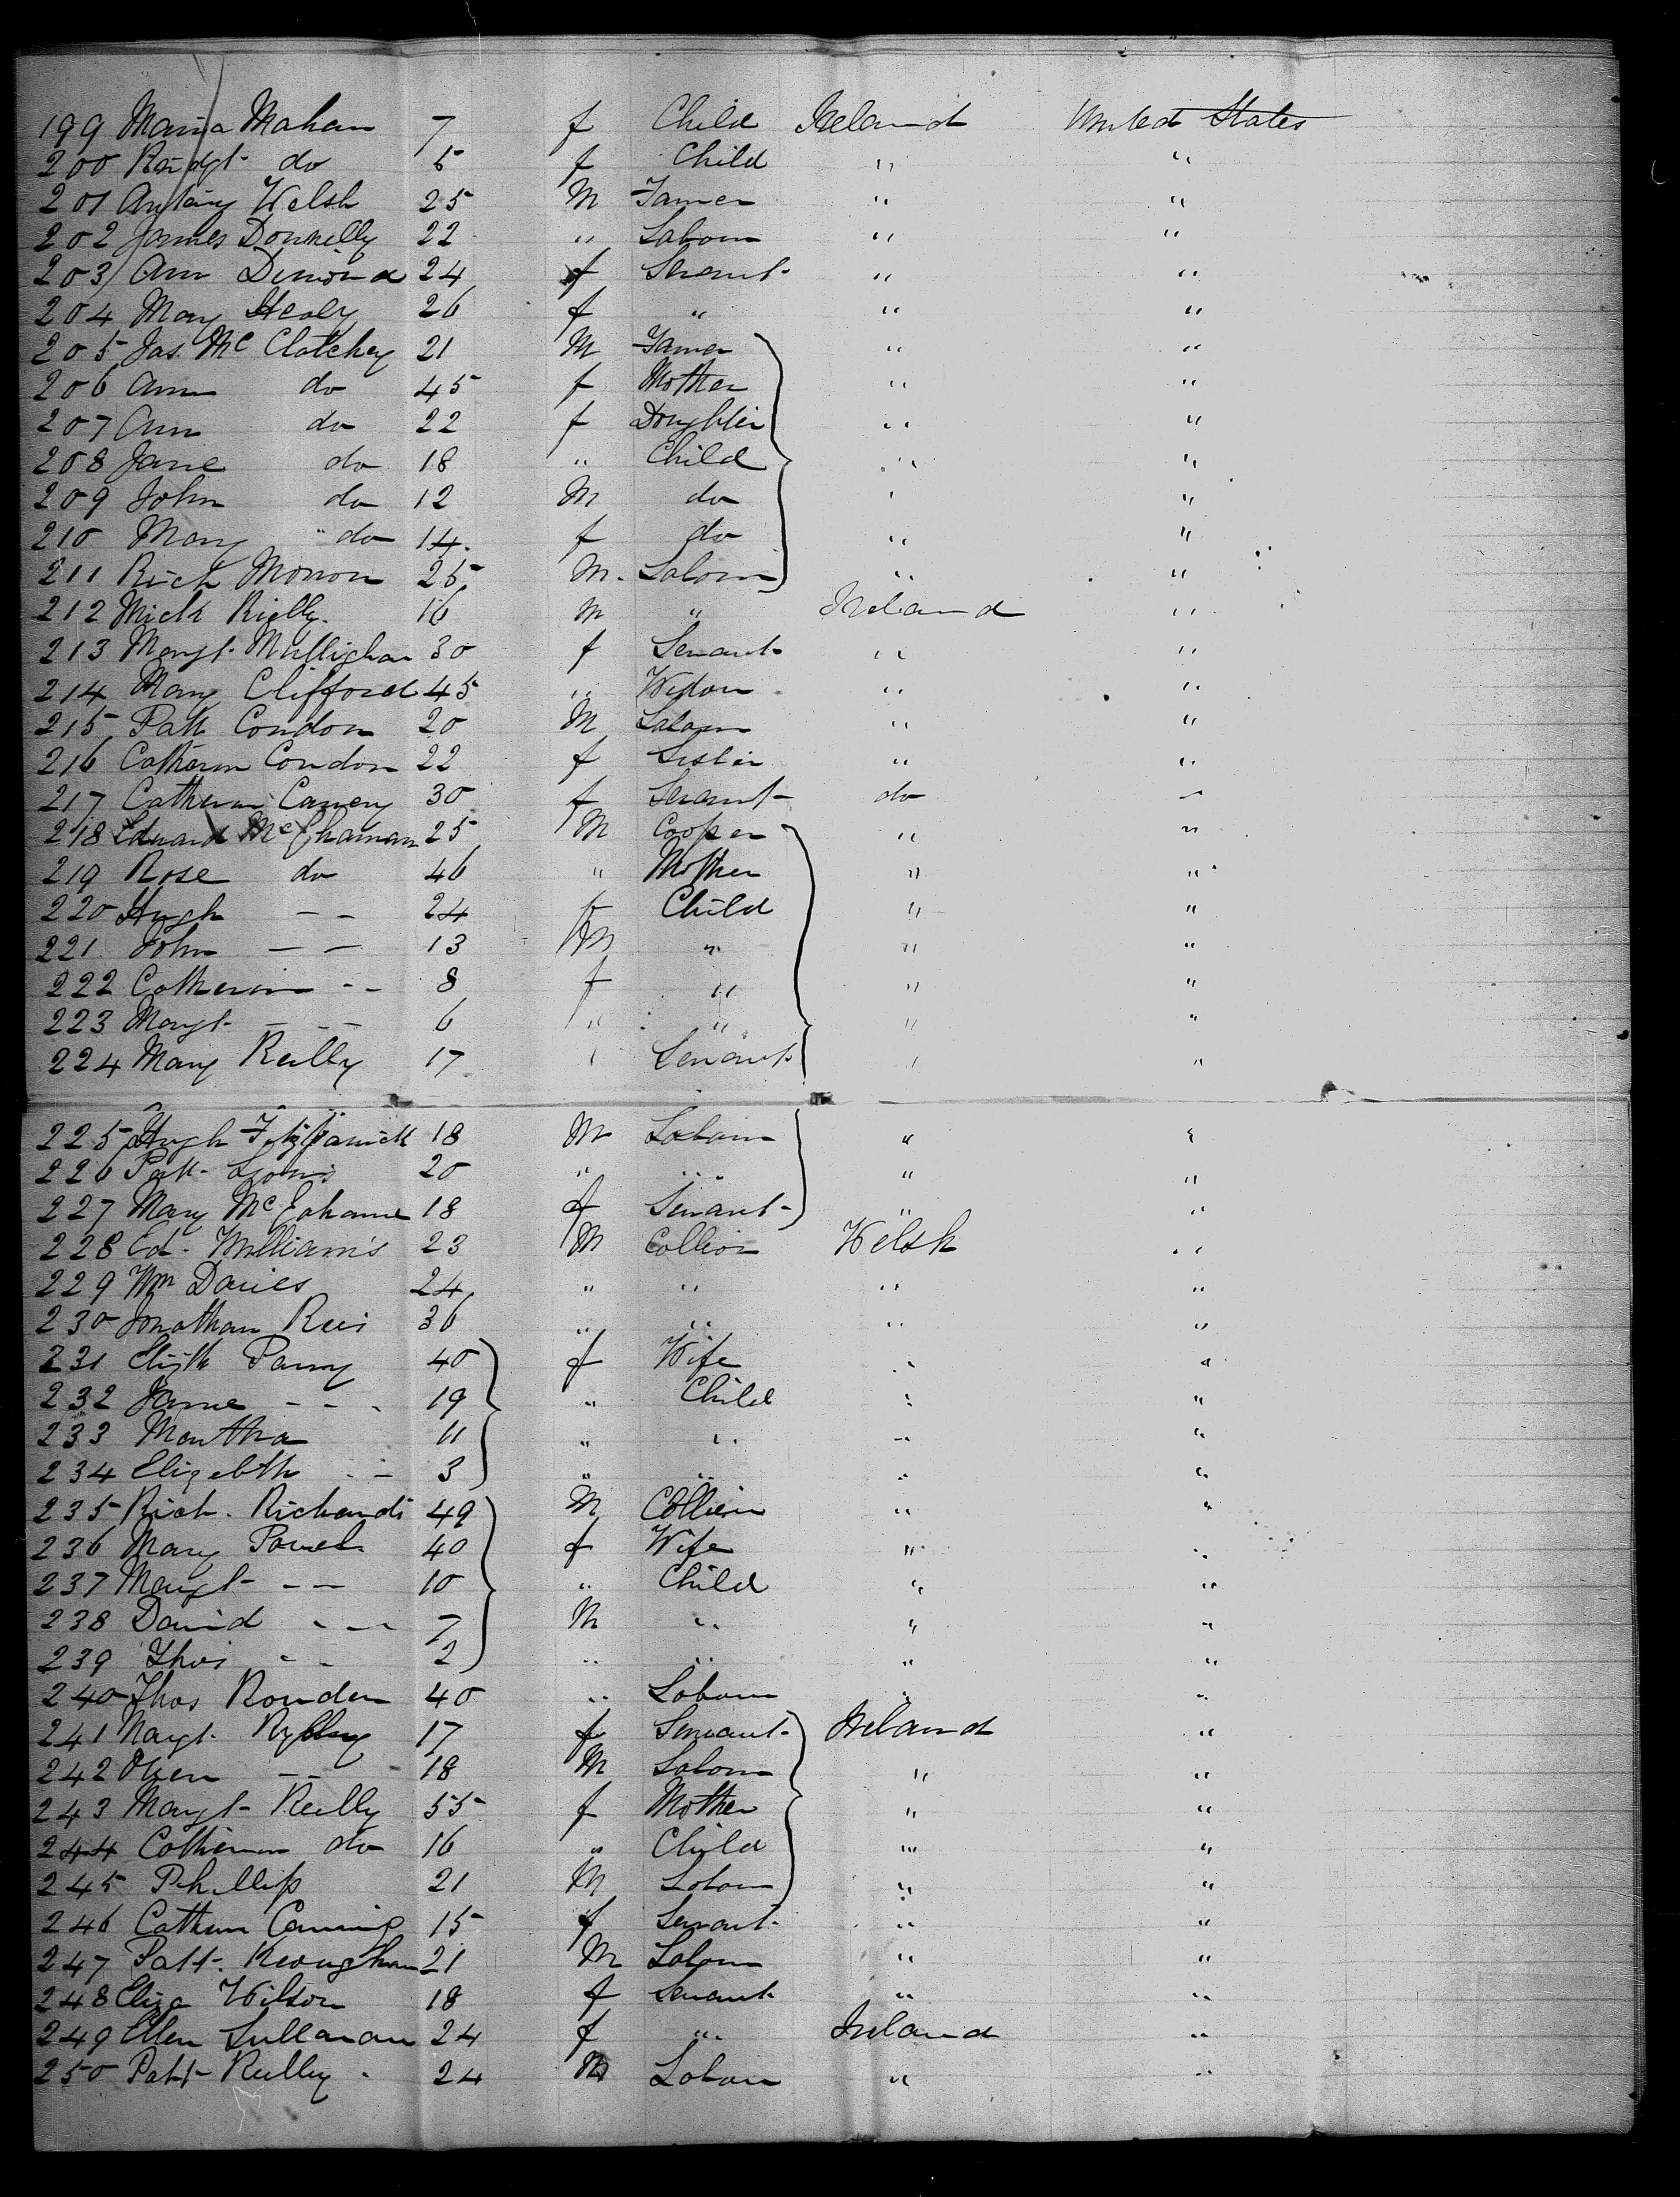 199 Maria Mahan 7 f Child Ireland United States
200 do 5 f Child " "
201 Antony Welsh 25 M Famer " "
202 James Donnelly 22 " Labour " "
203 Ann Dimond 24 f Servant " "
204 Mary Healy 26 f " " "
205 Jas. Mc Clatchey 21 M Famer " "
206 Ann do 45 f Mother " "
207 Ann do 22 f Doughter " "
208 Jane do 18 " Child " "
209 John do 12 M do " "
210 Mary " do 14 f do " "
211 Rich Morron 25 M. Labour " "
212 Mich Rielly 16 M " Ireland "
213 Margt. Mullighan 30 f Servant " "
214 Mary Clifford 45 " Widow " "
215 Patt Condon 20 M Labour " "
216 Catherin Condon 22 f Sister " "
217 Catherin 30 f Servant do "
218 Edward 25 M Cooper " "
219 Rose do 46 " Mother " "
220 Hugh — — 24 f Child " "
221 John — — 13 M " " "
222 Catherin - - 8 f " " "
223 Margt - — — 6 " " " "
224 Mary Reilly 17 " Servant " "
225 Hugh Fitzpatrick 18 M Labour " "
226 Patt Lyons 20 " " " "
227 Mary 18 f Servant " "
228 Ed. Williams 23 M Collier Welsh "
229 Wm Davies 24 " " " "
230 Jonathan Rees 36 " " " "
231 Elizth Parry 40 f Wife " "
232 Jane - - - 19 " Child " "
233 Martha 11 " " " "
234 Elizebth - — 3 " " " "
235 Rich. Richards 49 M Collier " "
236 Mary Powel 40 f Wife " "
237 Margt - — 10 " Child " "
238 David - - - 7 M " " "
239 Thos - - 2 " " " "
240 Thos Rowden 40 " Labour " "
241 Margt. 17 f Servant Ireland "
242 Owen — — 18 M Labour " "
243 Margt Reilly 55 f Mother " "
244 Catherin do 16 " Child " "
245 Phillip 21 M Labour " "
246 Cathern 15 f Servant " "
247 Patt. Keoughan 21 M Labour " "
248 Eliza Wilson 18 f Servant " "
249 Ellen Sullavan 24 f " Ireland "
250 Patt Reilly 24 M Labour " "